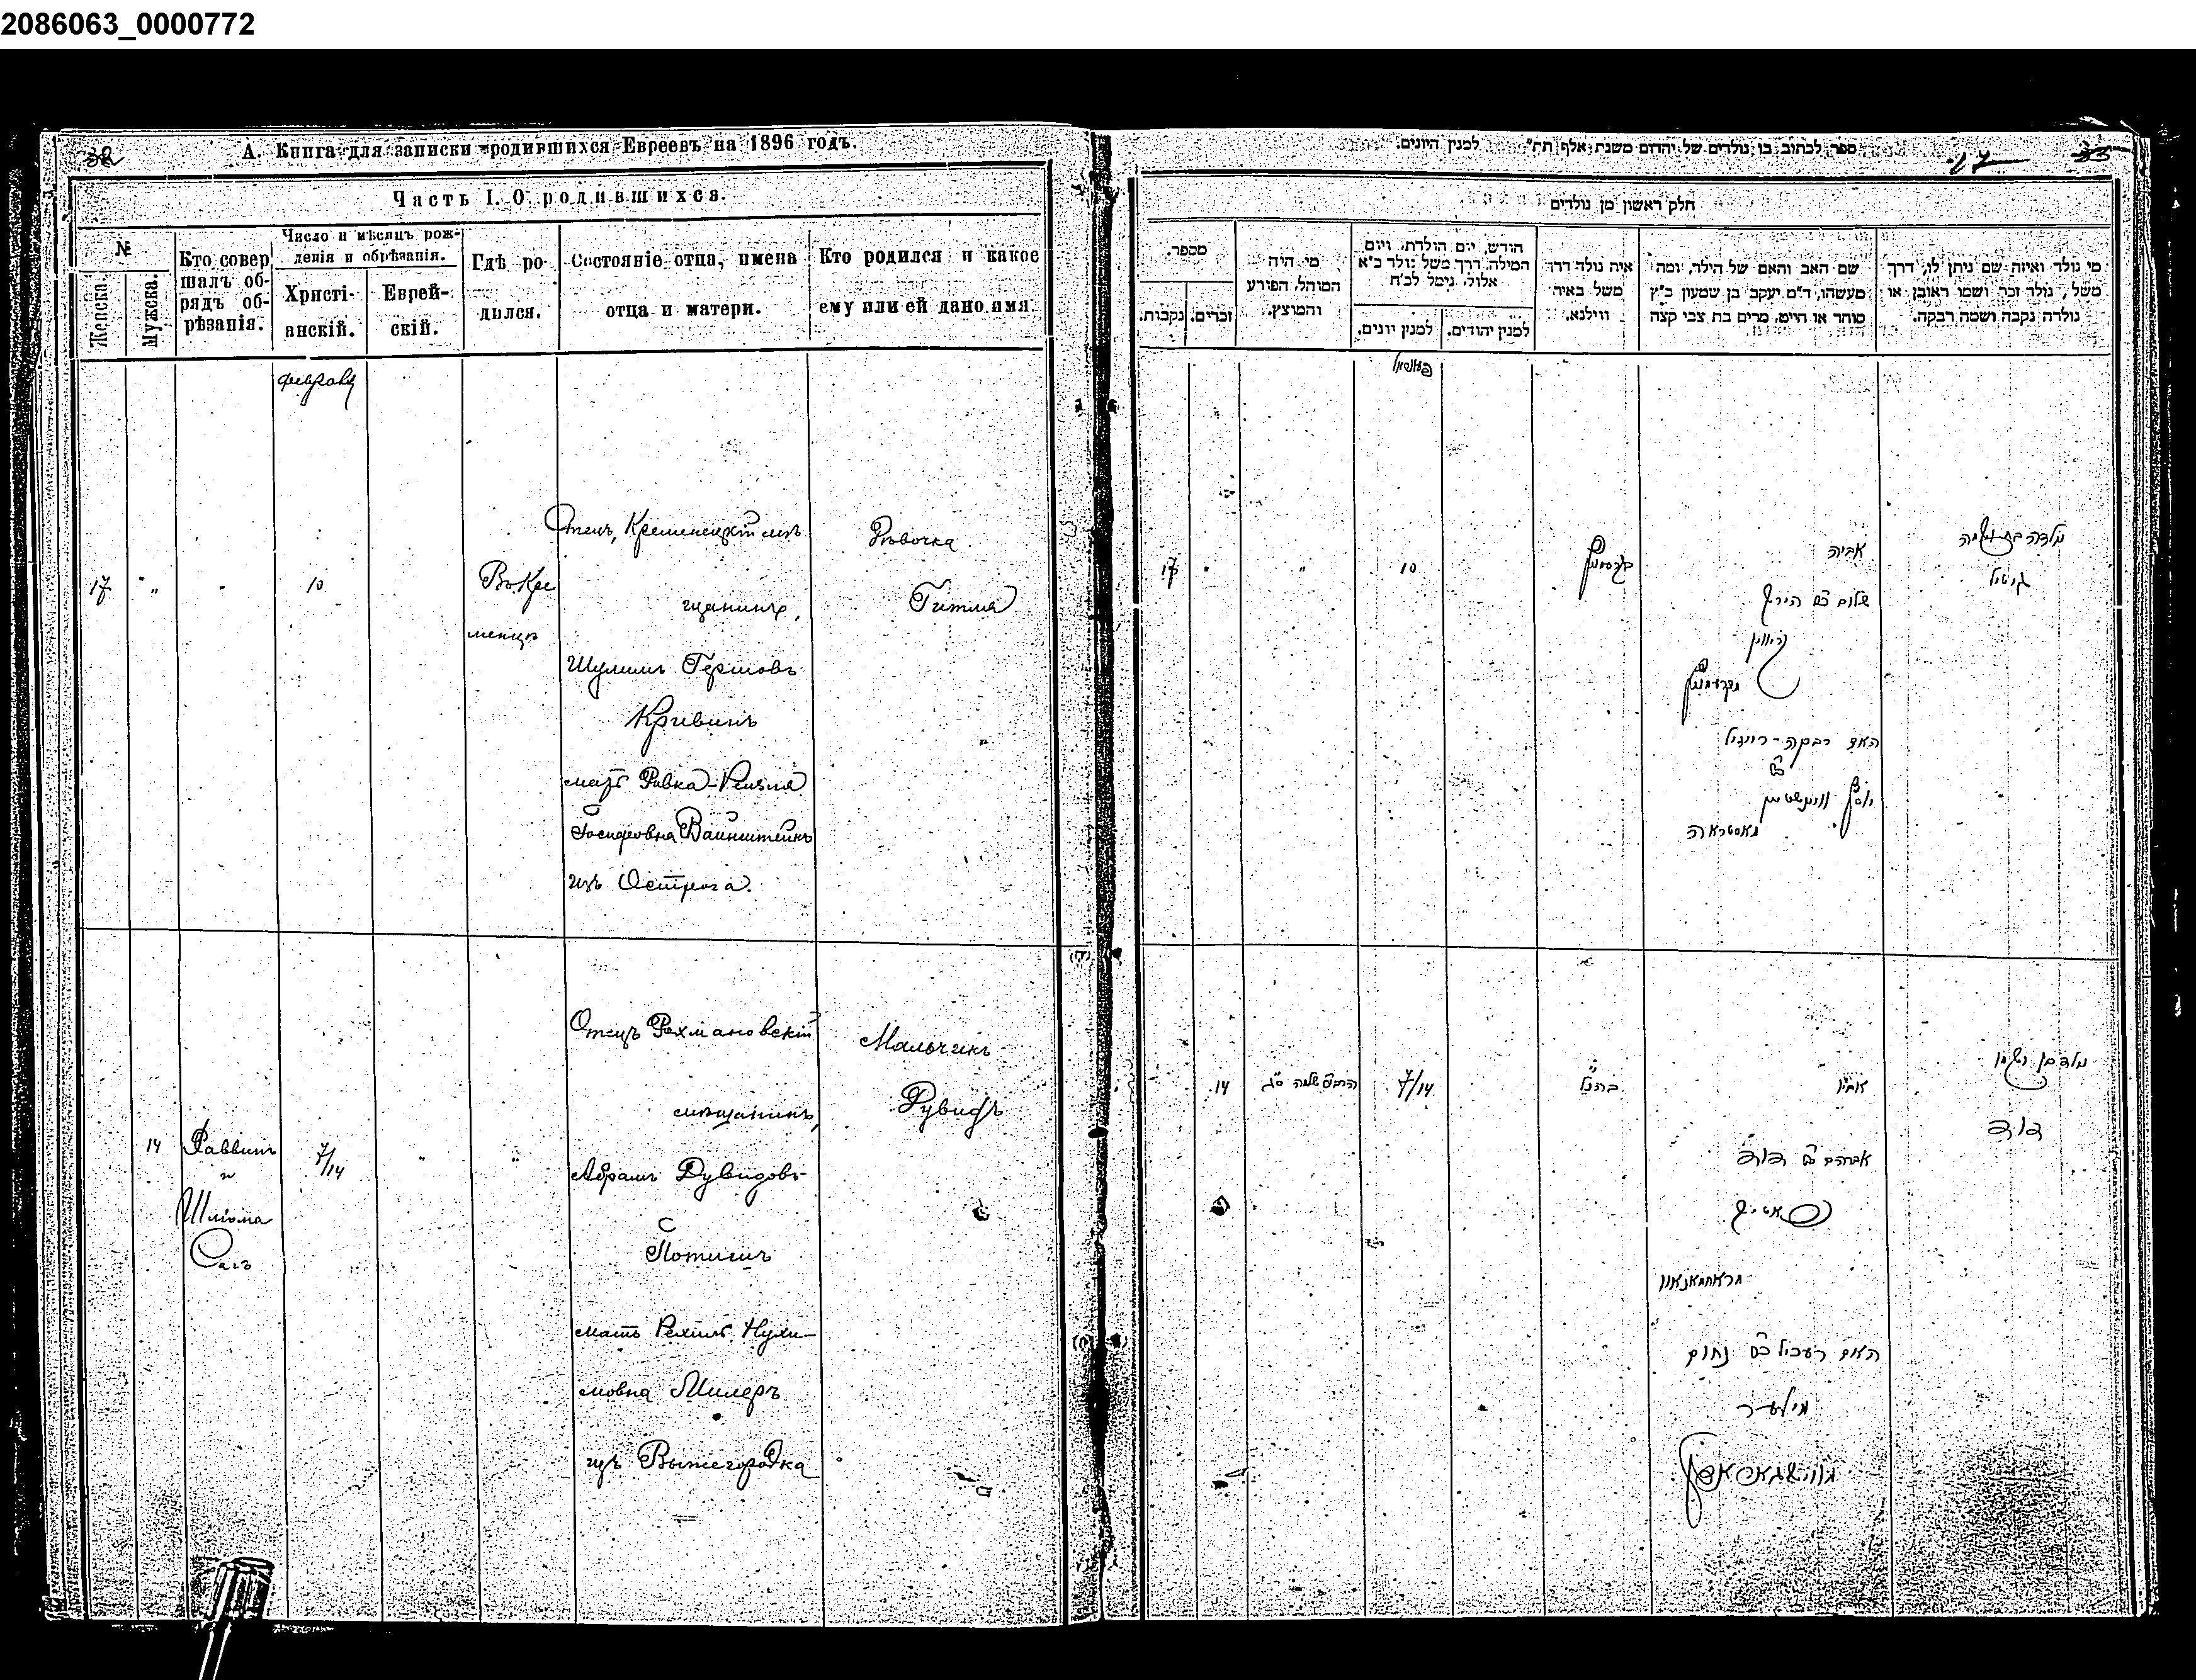 2086063_0000772
32
А. Книга для записки родившихся Евреевъ на 1896 годъ.
Часть I. О родившихся.
№
Женска.
Мужска.
Кто совер
шалъ об-
рядъ об-
рѣзанія.
Число и мѣсяцъ рож-
денія и обрѣзанія.
Христі-
анскій.
Еврей-
скій.
Гдѣ ро-
дился.
Состояніе отца, имена
отца и матери.
Кто родился и какое
ему или ей дано имя.
Февраля
17
"
-
10
Въ Кре
менцѣ
Отецъ, Кременецкій мѣ
щанинъ,
Шулимъ Гершовъ
Кривинъ
мать Ривка-Рейзля
Іосифовна Вайнштейнъ
изъ Острога.
Дѣвочка
Гитля
14
Раввинъ
и
Шліома
Сагъ
7/14
"
"
Отецъ Рахмановскій
мѣщанинъ,
Абрамъ Дувидовъ
Потигъ
мать Рехиль Нухи-
мовна Милеръ
изъ Вышегородка
Мальчикъ
Дувидъ
ספר לכתוב בו נולדים של יהדום משנת אלף תת״ למנין היונים.
17
33
חלק ראשון מן נולדים
מספר.
נקבות.
זכרים.
מי היה
המוהל, הפורע
והמוצץ.
הודש, יום הולדת, ויום
המילה, דרך משל נולד כ״א
אלול, נימל לכ״ח
למנין יונים.
למנין יהודים.
איה נולד דרך
משל באיה
ווילנא.
שם האב והאם של הילד, ומה
מעשהו, ד״מ יעקב בן שמעון כ״ץ
סוחר או חייט, מרים בת צבי קצה
מי נולד ואיזה שם ניתן לו, דרך
משל, נולד זכר ושמו ראובן או
נולדה נקבה ושמה רבקה.
17
"
10
אביה
שלום ב״ר הירש
קריווין
האם רבקה-רייזיל
ב״ר
יוסף וויינשטיין
מאסטראה
גיטיל
14
7/14
אביו
אברהם ב״ר דוד
האם רעכיל ב״ר נחום
מילער
דוד